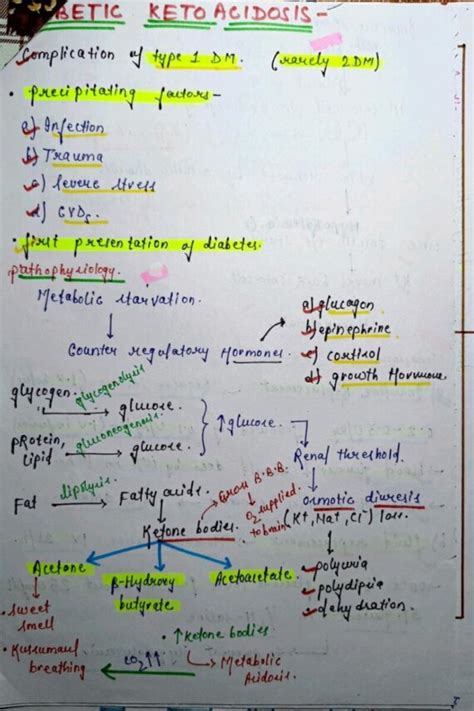 BETIC KETO ACIDOSIS -
Complication of type 1 DM. (rarely 2DM)
• precipitating factors -
a) Infection
b) Trauma
c) Severe stress
d) CVDs.
• first presentation of diabetes.
pathophysiology.
Metabolic starvation.
Counter regulatory Hormones
a) glucagon
b) epinephrine
c) cortisol
d) growth Hormone
glycogen glycogenolysis glucose.
protein, lipid gluconeogenesis glucose.
↑glucose.
Renal threshold.
osmotic diuresis
(K⁺, Na⁺, Cl⁻) loss.
• polyuria
• polydipsia
• dehydration.
Fat lipolysis Fatty acids.
Ketone bodies.
cross B.B.B.
O₂ supplied
to brain
Acetone
β-Hydroxy
butyrate
Acetoacetate.
• sweet
smell
• Kussumaul
breathing
• ↑ketone bodies
CO₂↑↑
Metabolic
Acidosis.